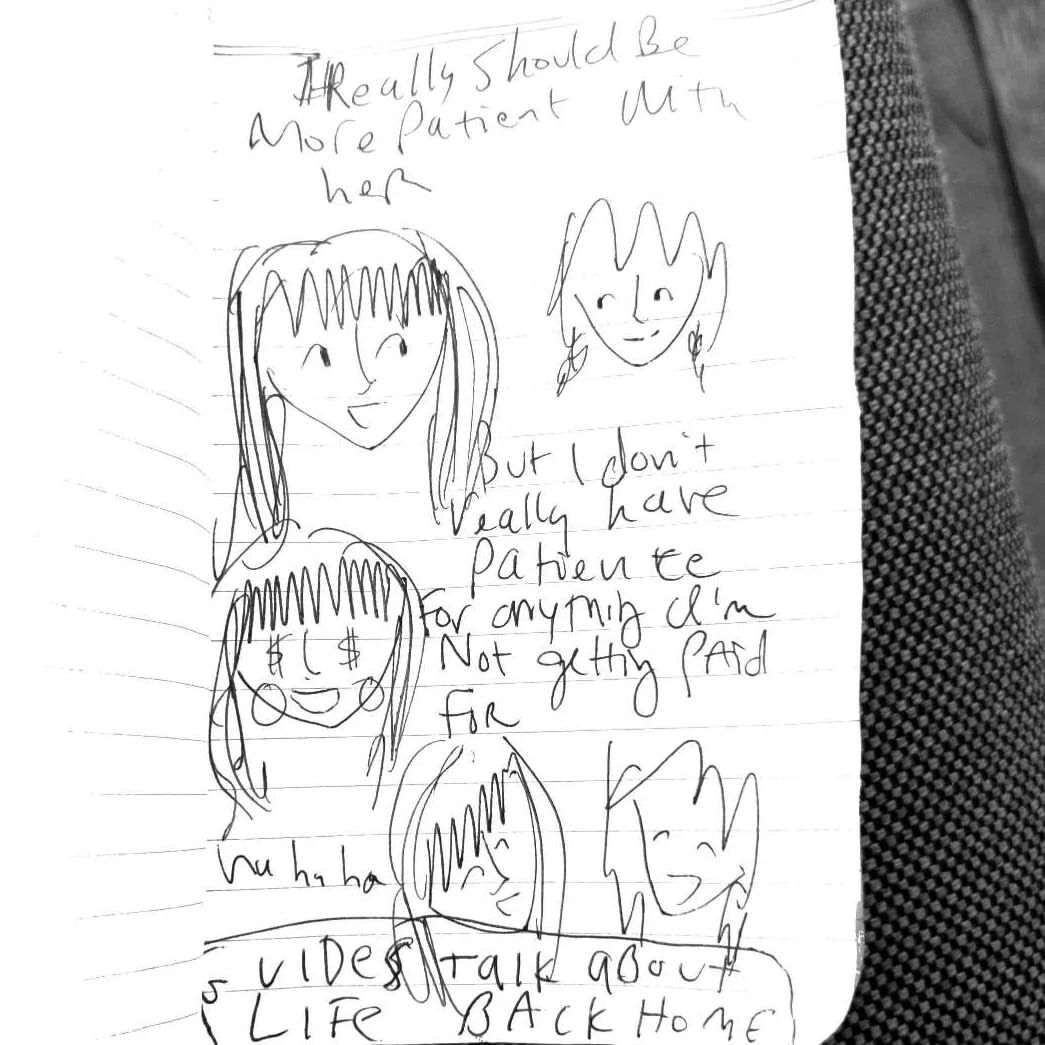 I Really Should Be
More Patient With
her
But I don't
really have
patience
For anything I'm
Not getting PAid
FOR
ha ha ha
VIDES talk aBout
LIFe BACK HOME